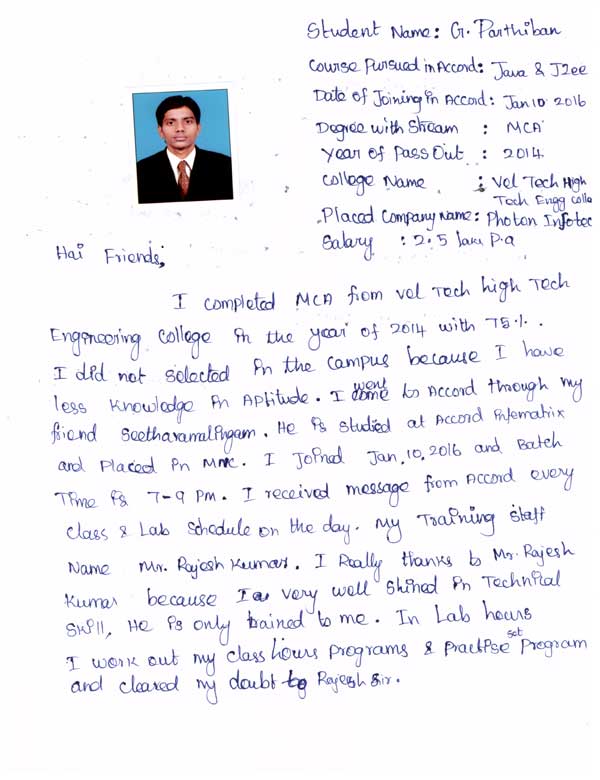 Student Name: G. Parthiban
Course Pursued in Accord: Java & J2ee
Date of Joining in Accord: Jan 10 2016
Degree with Stream : MCA
Year of Pass Out : 2014
College Name : Vel Tech High
Tech Engg Colle
Placed Company Name: Photon Infotec
Salary : 2.5 lakh P.a
Hai Friends,
I completed MCA from Vel Tech high Tech
Engineering College in the year of 2014 with 75%.
I did not selected in the campus because I have
less knowledge in Aptitude. I went to Accord through my
friend Seetharamalingam. He is studied at Accord Infomatix
and Placed in MNC. I Joined Jan.10.2016 and Batch
Time is 7-9 PM. I received message from Accord every
class & Lab Schedule on the day. My Training staff
Name Mr. Rajesh Kumar. I Really thanks to Mr. Rajesh
Kumar because I very well shined in Technical
Skill, He is only trained to me. In Lab hours
I work out my class hours programs & Practise set Program
and cleared my doubt to Rajesh sir.